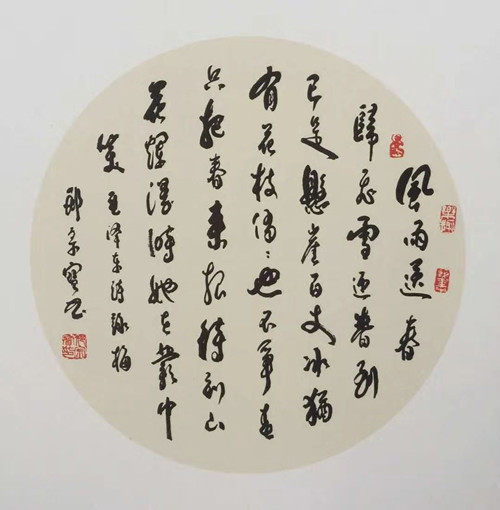 風雨送春
歸飛雪迎春到
已是懸崖百丈冰猶
有花枝俏〻也不爭春
只把春來報待到山
花爛漫時她在叢中
笑 毛澤東詩詠梅
邢 寶書